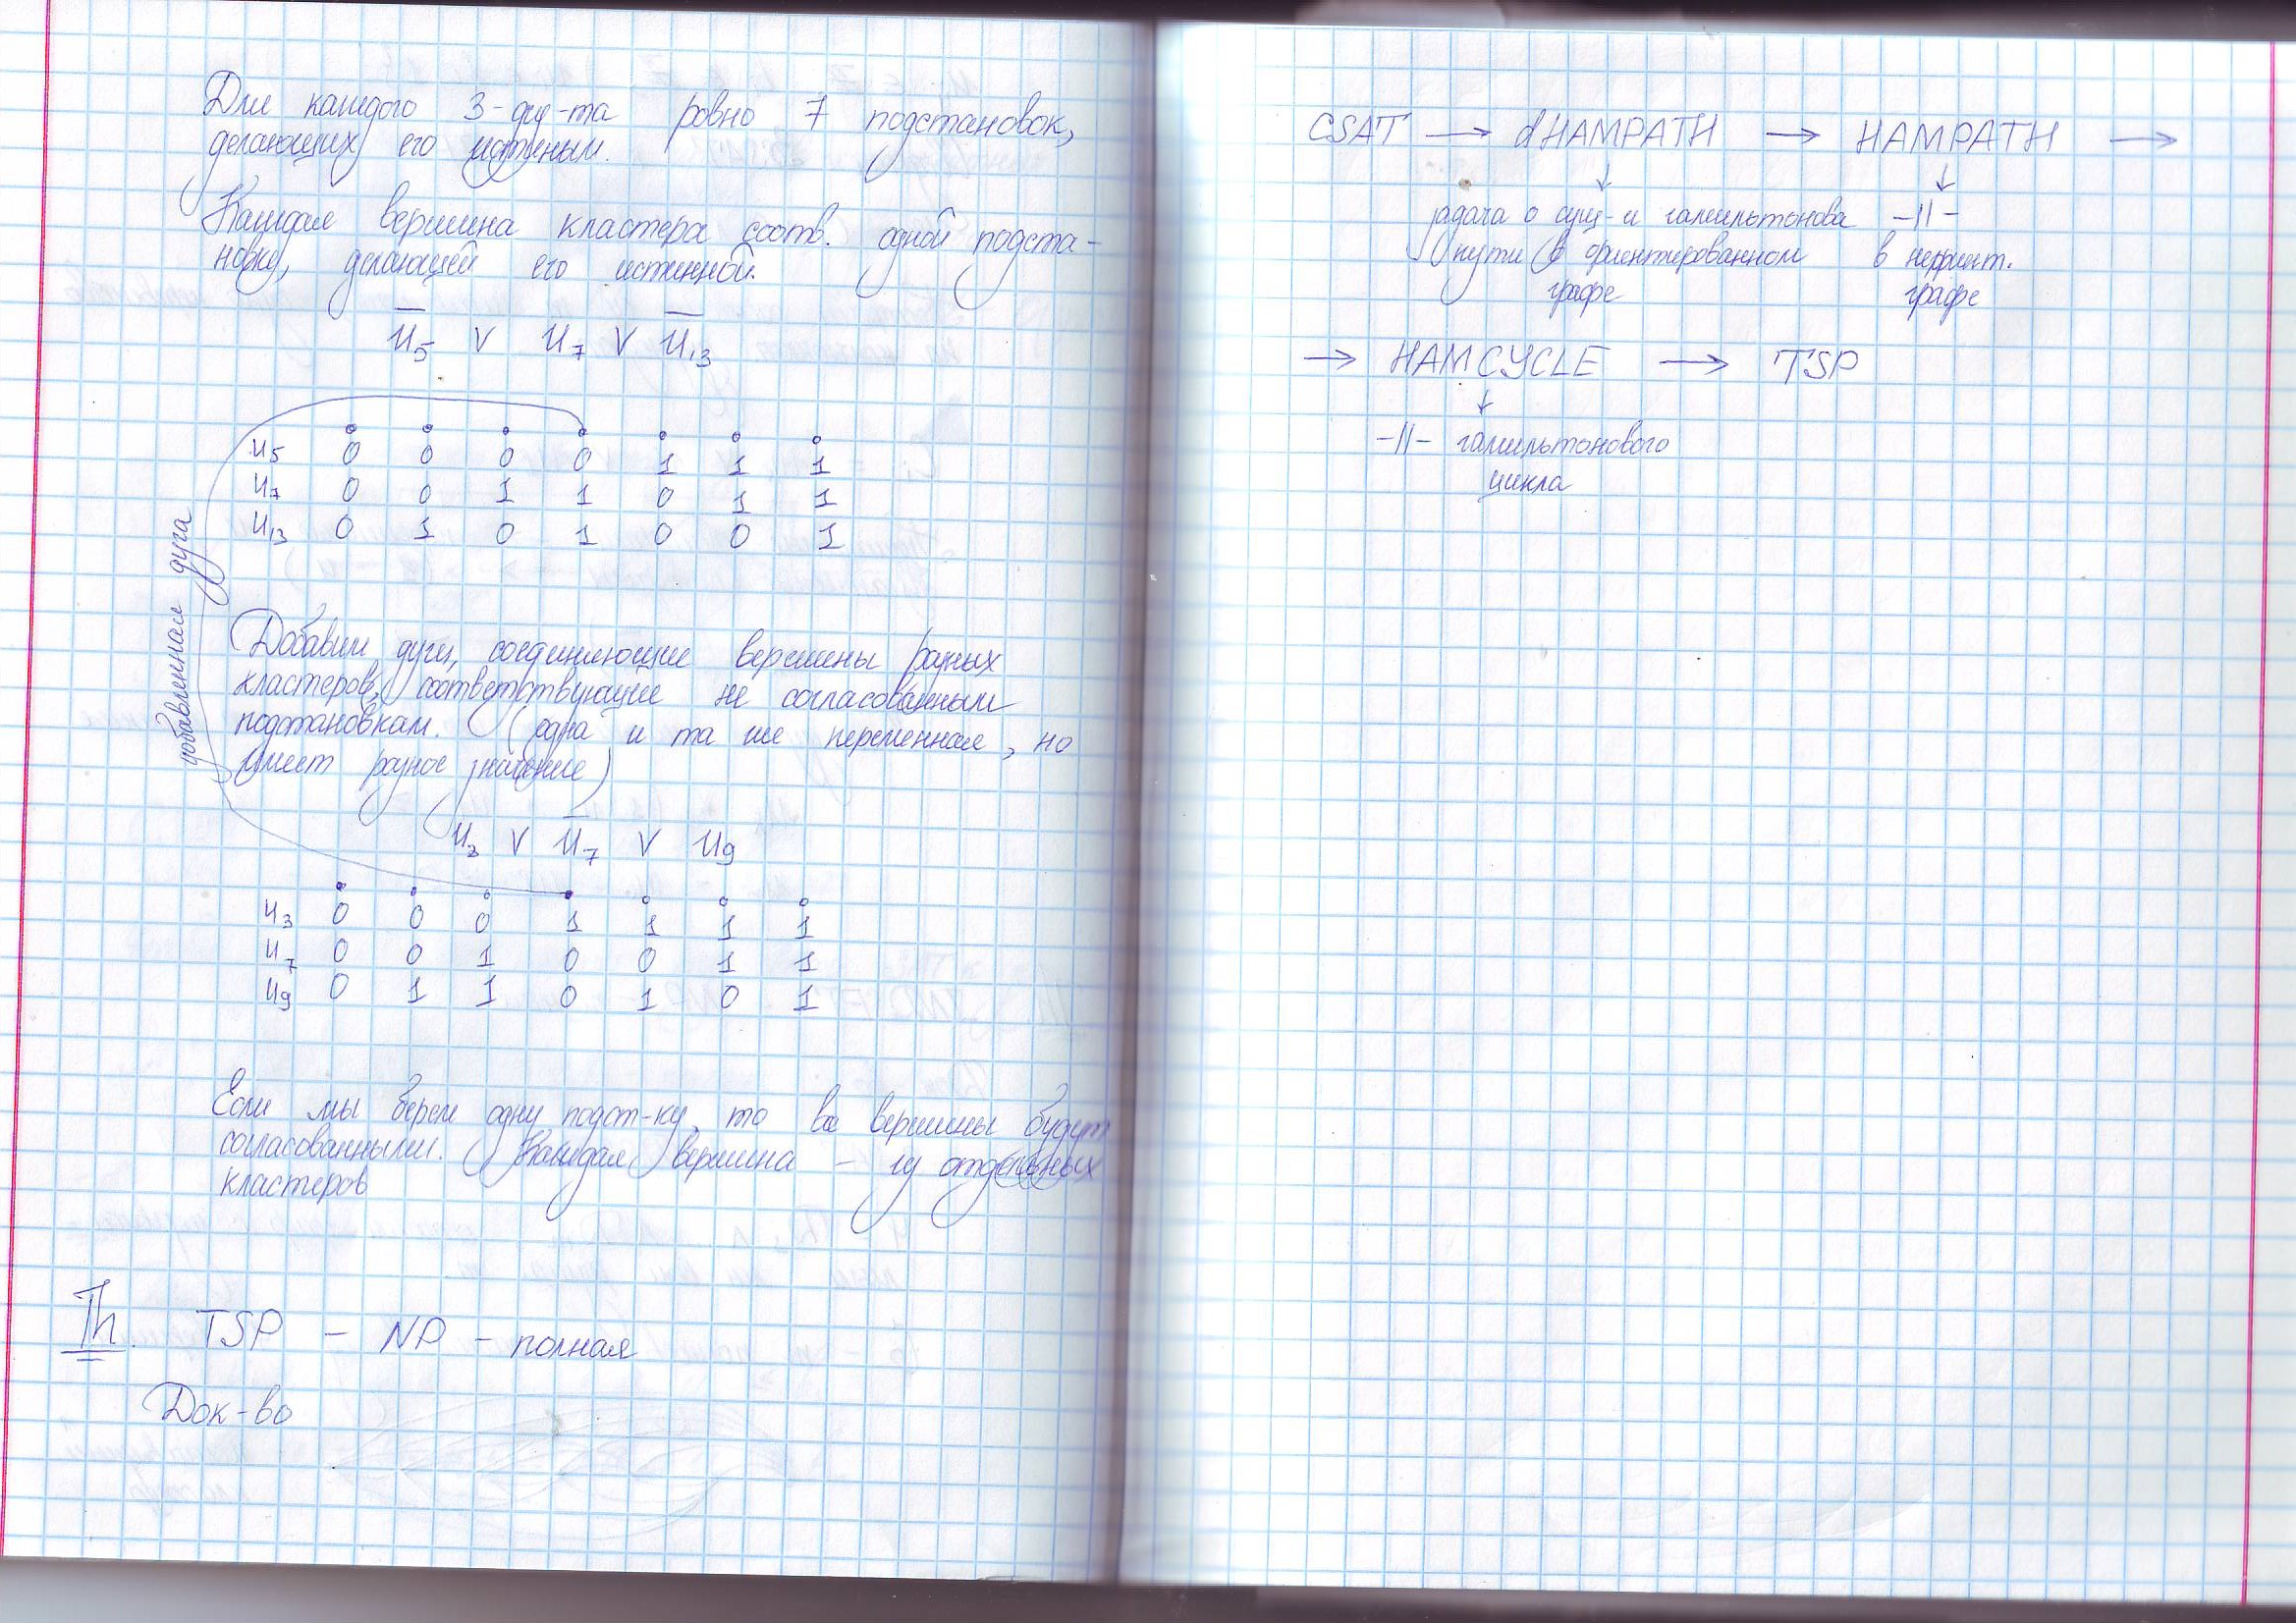 Для каждого 3-диз-та ровно 7 подстановок,
делающих его истиным.
Каждая вершина кластера соотв. одной подста-
новке, делающей его истинной.
u̅₅ ∨ u₇ ∨ u̅₁₃
u₅ 0 0 0 0 1 1 1
u₇ 0 0 1 1 0 1 1
u₁₃ 0 1 0 1 0 0 1
добавленная дуга
Добавим дуги, соединяющие вершины разных
кластеров, соответствующие не согласованным
подстановкам. (одна и та же переменная, но
имеет разное значение)
u₃ ∨ u̅₇ ∨ u₉
u₃ 0 0 0 1 1 1 1
u₇ 0 0 1 0 0 1 1
u₉ 0 1 1 0 1 0 1
Если мы берем одну подст-ку, то все вершины будут
согласованными. Каждая вершина – из отдельных
кластеров
Th. TSP – NP – полная
Док-во
CSAT → dHAMPATH → HAMPATH →
↓ ↓
задача о сущ-и гамильтонова -||-
пути в ориентированном в неориент.
графе графе
→ HAMCYCLE → TSP
↓
-||- гамильтонового
цикла